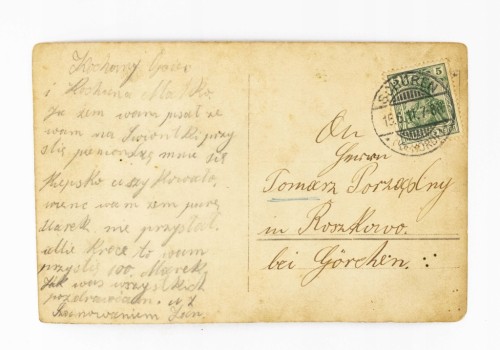 Kochany Ojcze
i Kochana Matko
Ja żem wam pisał że
wam na Swiontki przy
ślię pieniondze mnie się
Kiepsko
wienc wam żem parę
Marek nie przysłał
allie Krece to wam
przyślię 100 Marek,
Jak was wszystkich
pozdrawiam. i z
Szanowaniem
5
SPÜREN
15.6.11.7-8N
An
Herrn
Tomasz Porządny
in Roszkowo.
bei Görchen.